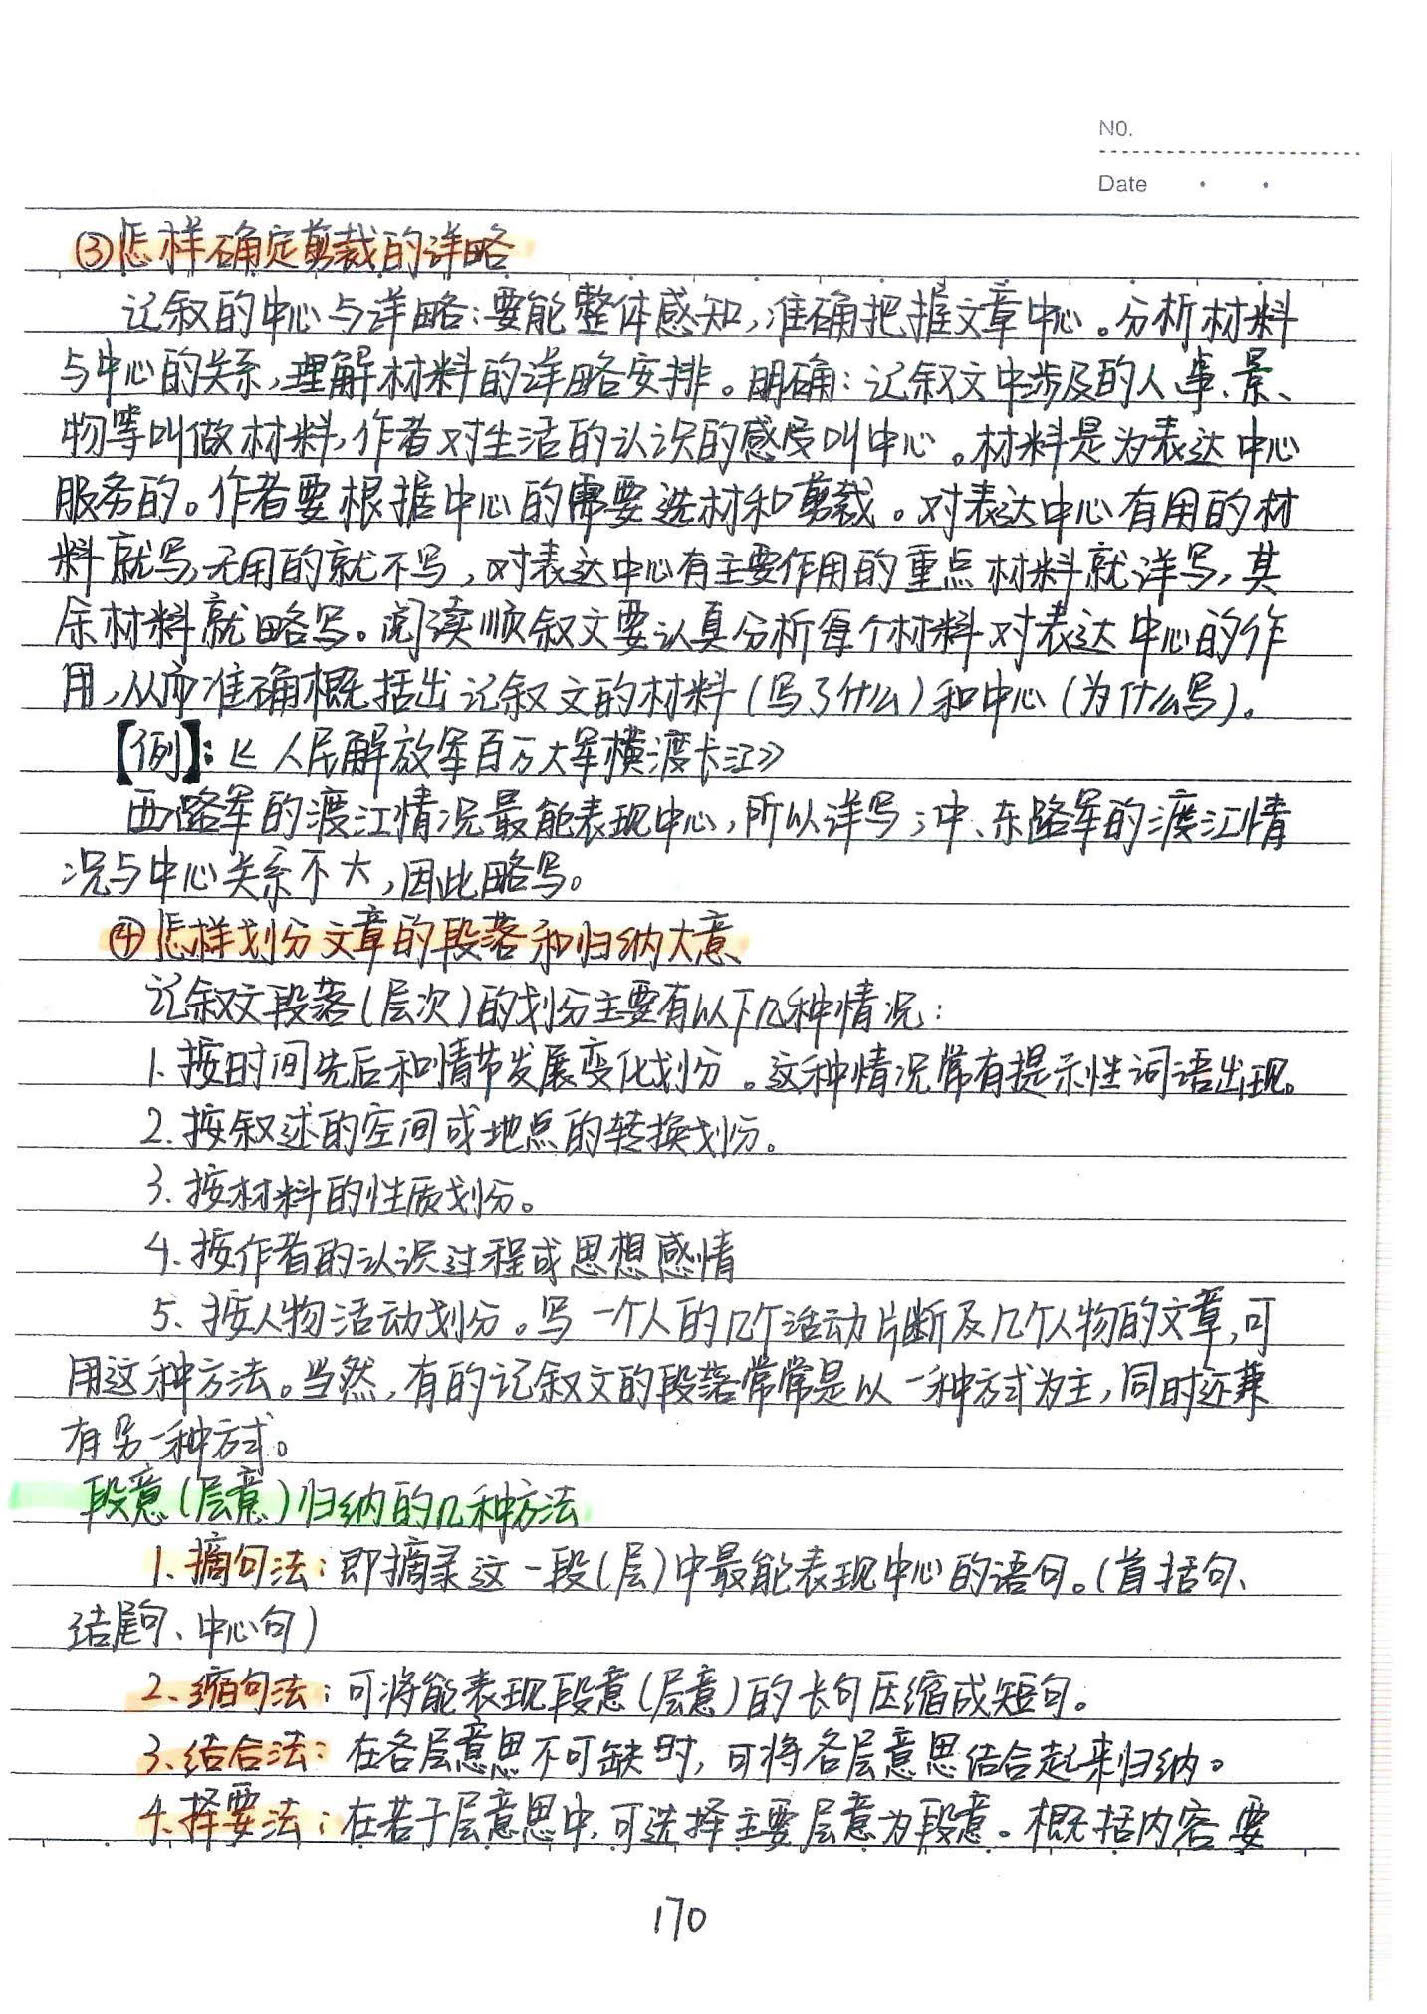 NO.
Date
③怎样确定剪裁的详略
记叙的中心与详略:要能整体感知,准确把握文章中心。分析材料
与中心的关系,理解材料的详略安排。明确:记叙文中涉及的人、事、景、
物等叫做材料,作者对生活的认识的感受叫中心。材料是为表达中心
服务的。作者要根据中心的需要选材和剪裁。对表达中心有用的材
料就写,无用的就不写,对表达中心有主要作用的重点材料就详写,其
余材料就略写。阅读顺叙文要认真分析每个材料对表达中心的作
用,从而准确概括出记叙文的材料(写了什么)和中心(为什么写)。
【例】:《人民解放军百万大军横渡长江》
西路军的渡江情况最能表现中心,所以详写;中、东路军的渡江情
况与中心关系不大,因此略写。
④怎样划分文章的段落和归纳大意
记叙文段落(层次)的划分主要有以下几种情况:
1.按时间先后和情节发展变化划分。这种情况常有提示性词语出现。
2.按叙述的空间或地点的转换划分。
3.按材料的性质划分。
4.按作者的认识过程或思想感情
5.按人物活动划分。写一个人的几个活动片断及几个人物的文章,可
用这种方法。当然,有的记叙文的段落常常是以一种方式为主,同时还兼
有另一种方式。
段意(层意)归纳的几种方法
1.摘句法:即摘录这一段(层)中最能表现中心的语句。(首括句、
结尾句、中心句)
2.缩句法:可将能表现段意(层意)的长句压缩成短句。
3.结合法:在各层意思不可缺时,可将各层意思结合起来归纳。
4.择要法:在若干层意思中,可选择主要层意为段意。概括内容要
170